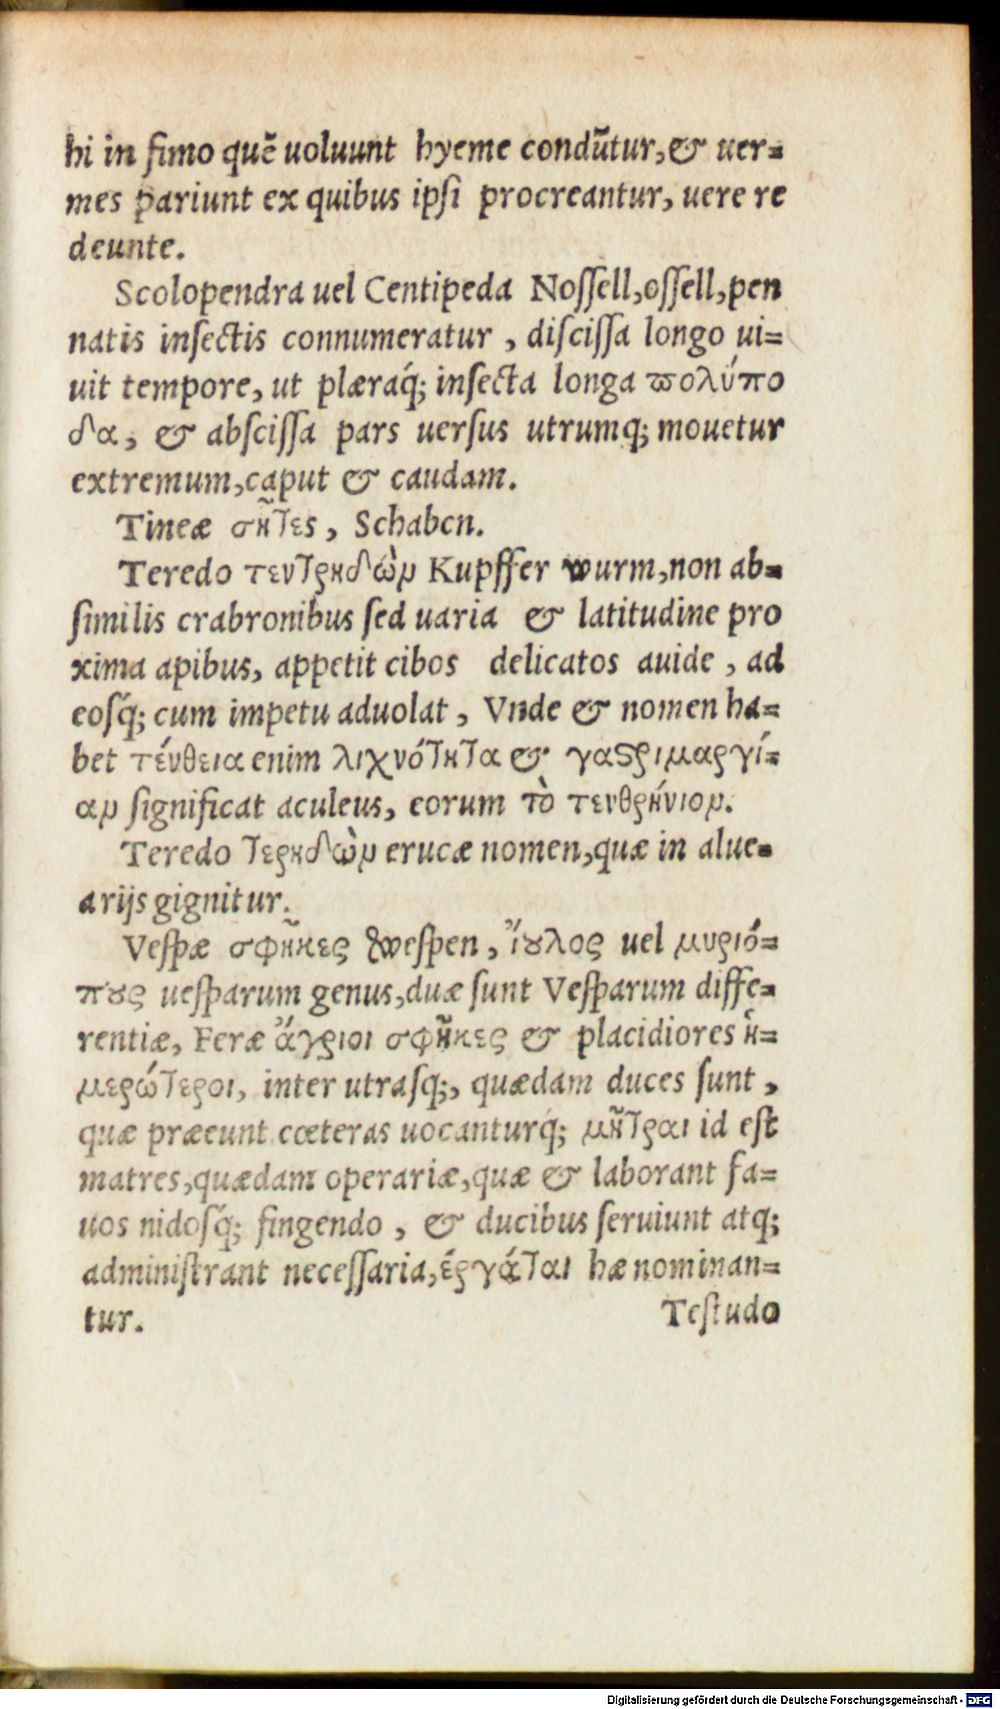 hi in fimo quẽ uoluunt hyeme condũtur, & uer=
mes pariunt ex quibus ipſi procreantur, uere re
deunte.
Scolopendra uel Centipeda Noſſell, oſſell, pen
natis inſectis connumeratur, diſciſſa longo ui=
uit tempore, ut plæraq́; inſecta longa ϖολύπο
δα, & abſciſſa pars uerſus utrumq; mouetur
extremum, caput & caudam.
Tineæ σῆτες, Schaben.
Teredo τεντρηδὼν Kupffer wurm, non ab=
ſimilis crabronibus ſed uaria & latitudine pro
xima apibus, appetit cibos delicatos auide, ad
eoſq́; cum impetu aduolat, Vnde & nomen ha=
bet τένθεια enim λιχνότητα & γαστριμαργί=
αν ſignificat aculeus, eorum τὸ τενθρήνιον.
Teredo τερηδὼν erucæ nomen, quæ in alue=
arijs gignitur.
Veſpæ σφῆκες Weſpen, ἴουλος uel μυριό=
πους ueſparum genus, duæ ſunt Veſparum diffe=
rentiæ, Feræ ἄγριοι σφῆκες & placidiores ἡ=
μερώτεροι, inter utraſq;, quædam duces ſunt,
quæ præeunt cœteras uocanturq́; μῆτραι id eſt
matres, quædam operariæ, quæ & laborant fa=
uos nidoſq́; fingendo, & ducibus ſeruiunt atq;
adminiſtrant neceſſaria, ἐργάται hæ nominan=
tur.
Teſtudo
Digitalisierung gefördert durch die Deutsche Forschungsgemeinschaft - DFG